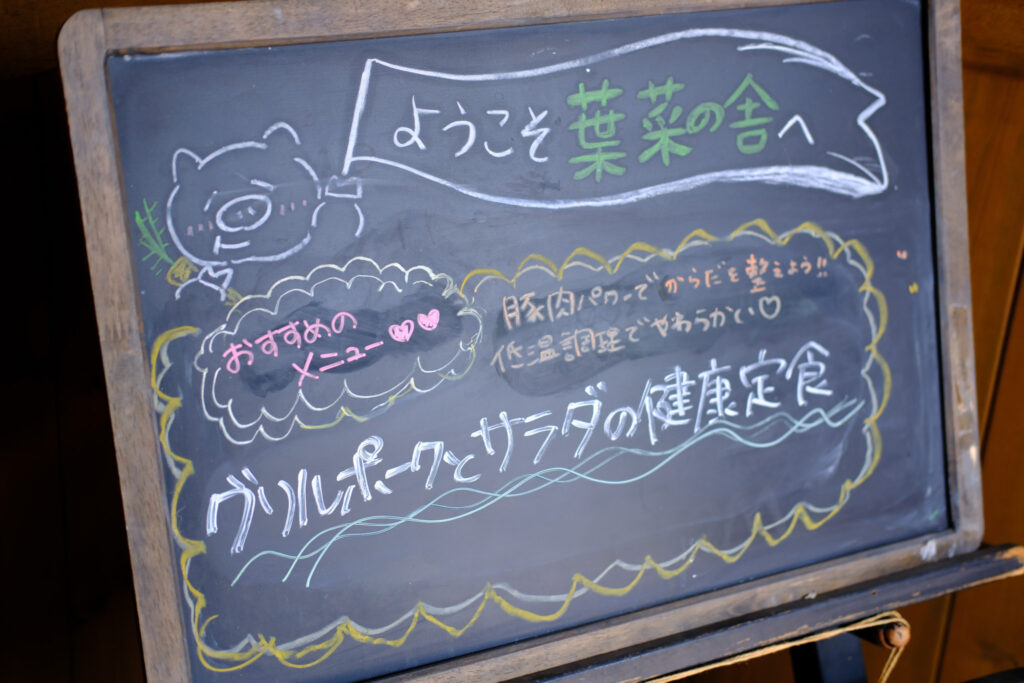 ようこそ葉菜の舎へ
おすすめの
メニュー♡♡
豚肉パワーでからだを整えよう!!
低温調理でやわらかい♡
グリルポークとサラダの健康定食